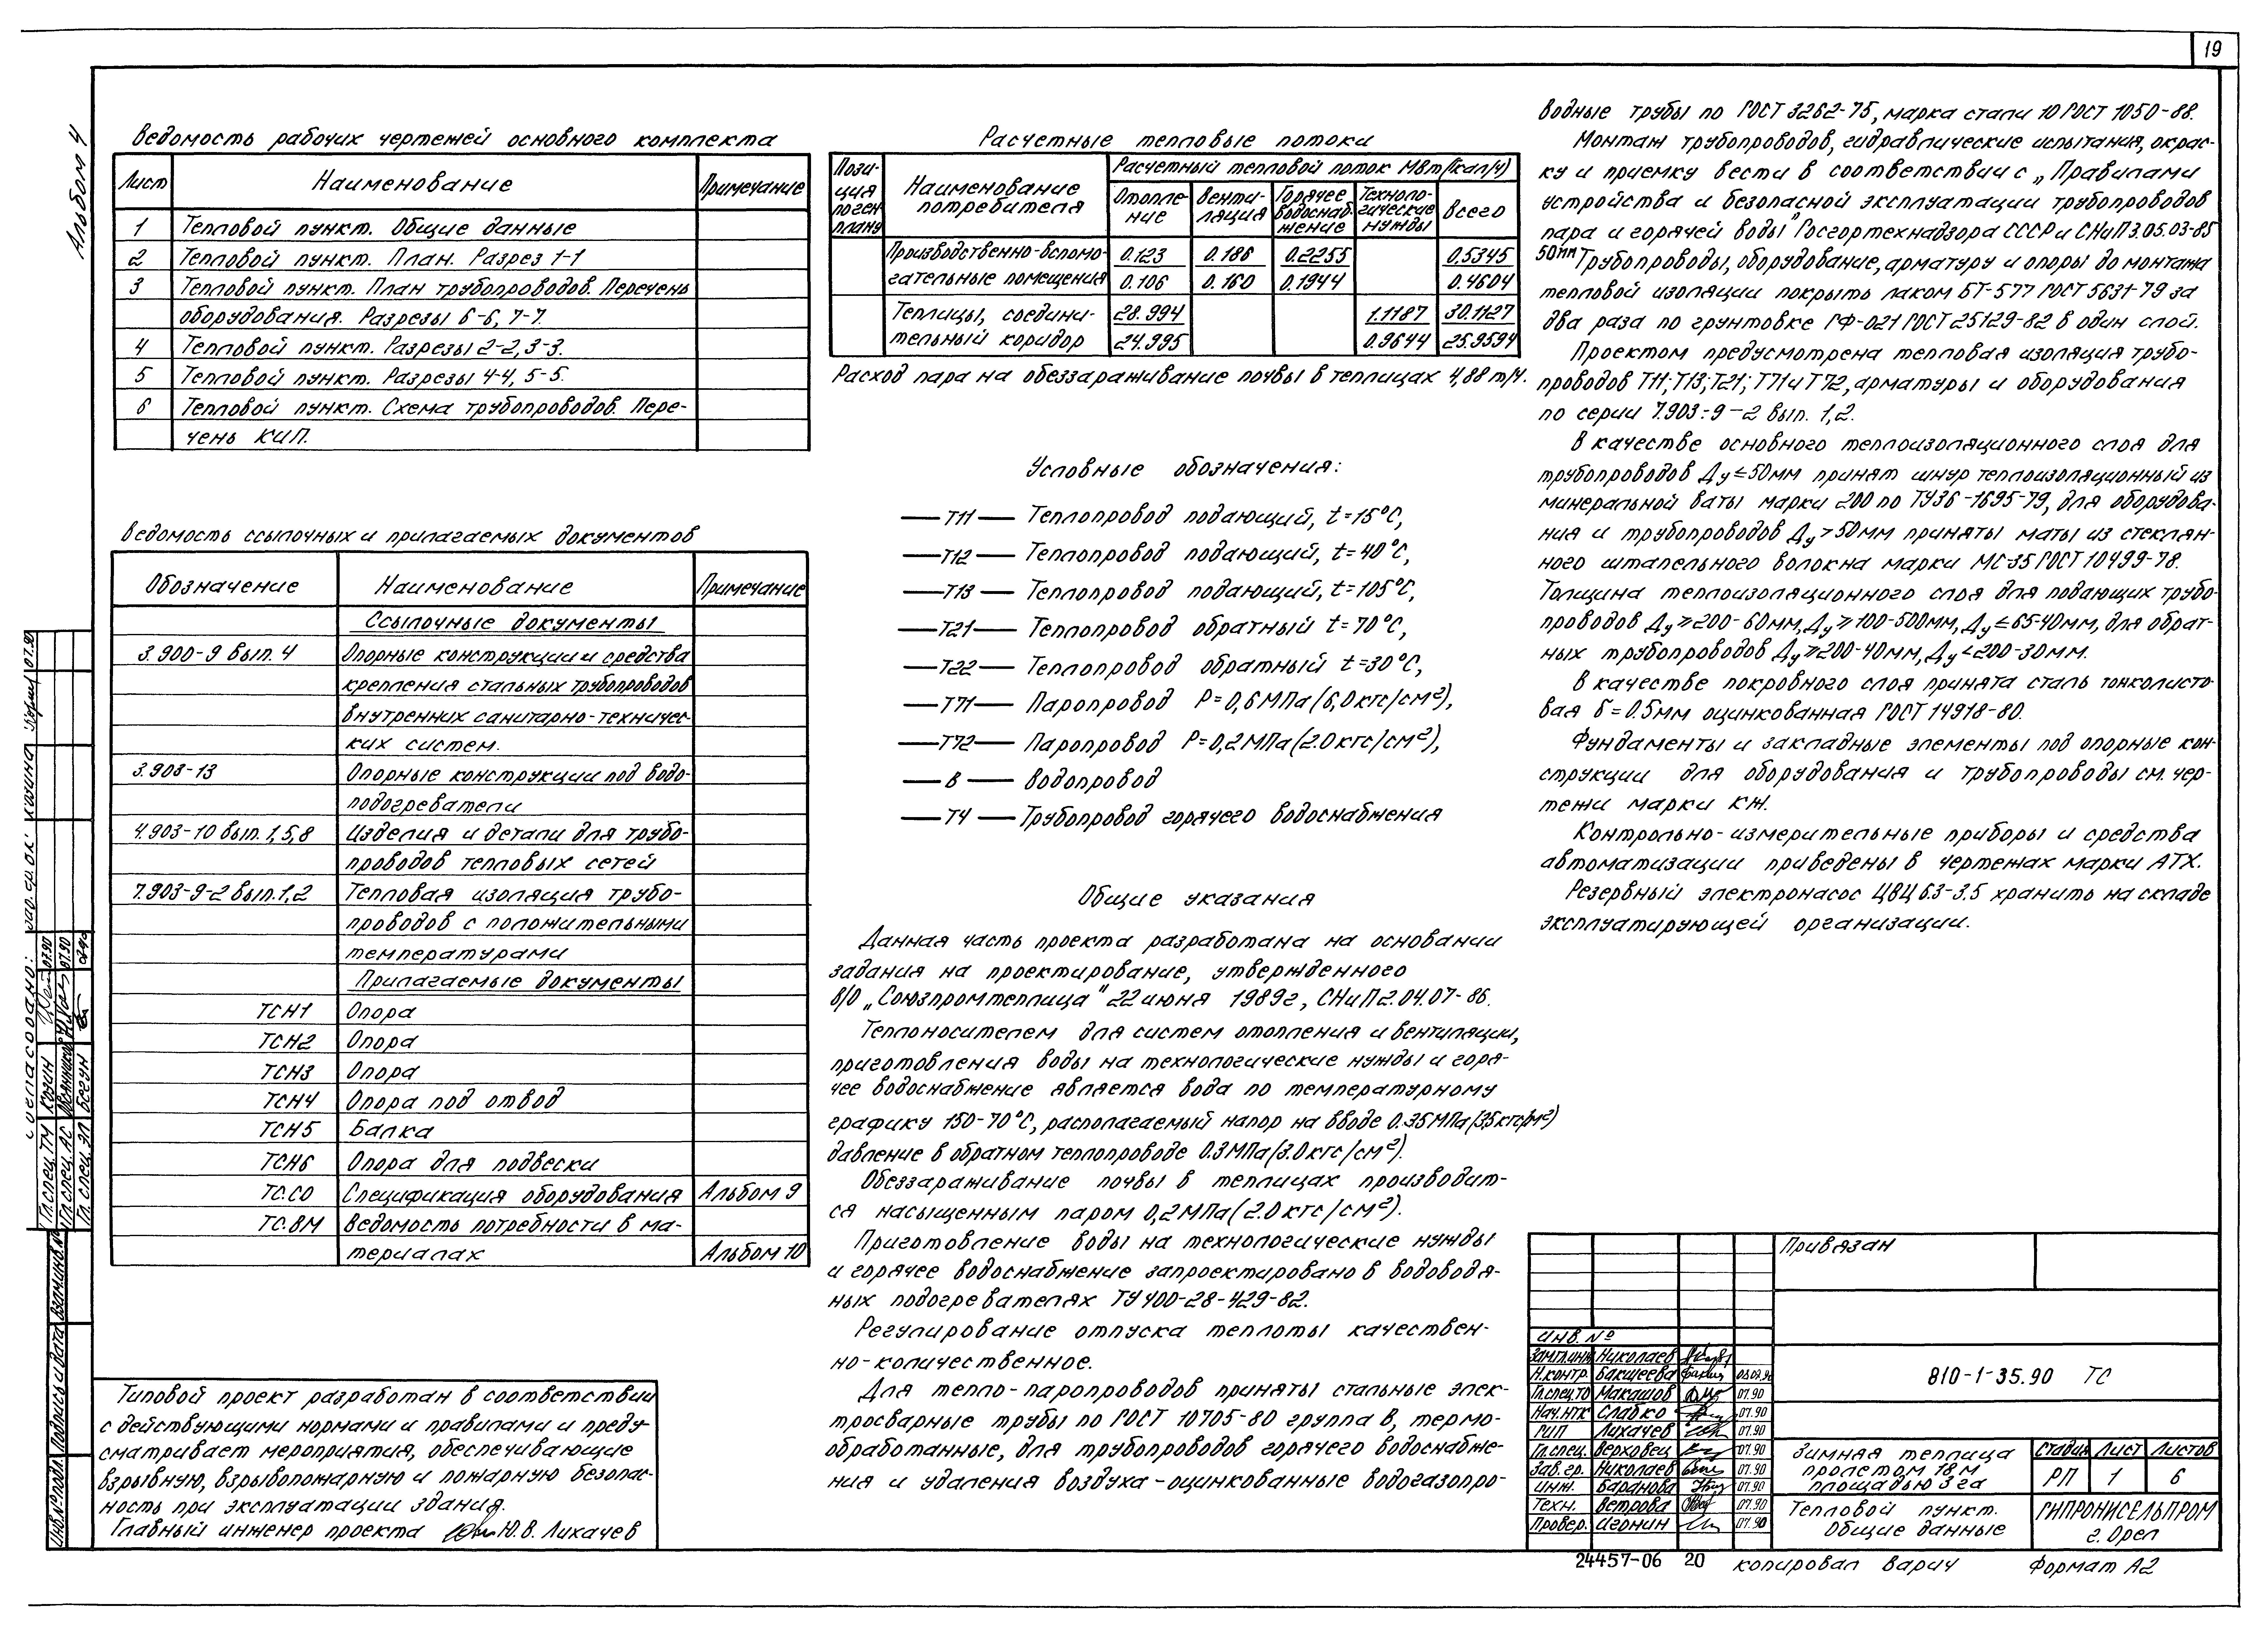 19
Альбом 4
Ведомость рабочих чертежей основного комплекта
Лист Наименование Примечание
1 Тепловой пункт. Общие данные
2 Тепловой пункт. План. Разрез 1-1
3 Тепловой пункт. План трубопроводов. Перечень
оборудования. Разрезы 6-6, 7-7.
4 Тепловой пункт. Разрезы 2-2, 3-3.
5 Тепловой пункт. Разрезы 4-4, 5-5.
6 Тепловой пункт. Схема трубопроводов. Пере-
чень КИП.
Ведомость ссылочных и прилагаемых документов
Обозначение Наименование Примечание
Ссылочные документы
3.900-9 вып. 4 Опорные конструкции и средства
крепления стальных трубопроводов
внутренних санитарно-техничес-
ких систем.
3.903-13 Опорные конструкции под водо-
подогреватели
4.903-10 вып. 1,5,8 Изделия и детали для трубо-
проводов тепловых сетей
7.903-9-2 вып.1,2 Тепловая изоляция трубо-
проводов с положительными
температурами
Прилагаемые документы
ТСН1 Опора
ТСН2 Опора
ТСН3 Опора
ТСН4 Опора под отвод
ТСН5 Балка
ТСН6 Опора для подвески
ТС.СО Спецификация оборудования Альбом 9
ТС.ВМ Ведомость потребности в ма-
териалах Альбом 10
Типовой проект разработан в соответствии
с действующими нормами и правилами и преду-
сматривает мероприятия, обеспечивающие
взрывную, взрывопожарную и пожарную безопас-
ность при эксплуатации здания.
Главный инженер проекта Ю.В. Лихачев
Расчетные тепловые потоки
Пози-
ция
по ген
плану
Наименование
потребителя
Расчетный тепловой поток МВт/(Гкал/ч)
Отопле-
ние
Венти-
ляция
Горячее
водоснаб-
жение
Техноло-
гические
нужды
Всего
Производственно-вспомо- 0.123 0.186 0.2255 0.5345
гательные помещения 0.106 0.160 0.1944 0.4604
Теплицы, соедини- 28.994 1.1187 30.1127
тельный коридор 24.995 0.9644 25.9594
Расход пара на обеззараживание почвы в теплицах 4,88 т/ч.
Условные обозначения:
Т11 Теплопровод подающий, t=15°С,
Т12 Теплопровод подающий, t=40°С,
Т13 Теплопровод подающий, t=105°С,
Т21 Теплопровод обратный t=70°С,
Т22 Теплопровод обратный t=30°С,
Т71 Паропровод Р=0,6МПа(6,0кгс/см²),
Т72 Паропровод Р=0,2МПа(2.0кгс/см²),
В Водопровод
Т4 Трубопровод горячего водоснабжения
Общие указания
Данная часть проекта разработана на основании
задания на проектирование, утвержденного
В/О „Союзпромтеплица" 22 июня 1989г, СНиП 2.04.07-86.
Теплоносителем для систем отопления и вентиляции,
приготовления воды на технологические нужды и горя-
чее водоснабжение является вода по температурному
графику 150-70°С, располагаемый напор на вводе 0.35МПа(3,5кгс/см²)
давление в обратном теплопроводе 0.3МПа(3.0кгс/см²).
Обеззараживание почвы в теплицах производит-
ся насыщенным паром 0,2МПа(2.0кгс/см²).
Приготовление воды на технологические нужды
и горячее водоснабжение запроектировано в водоводя-
ных подогревателях ТУ400-28-429-82.
Регулирование отпуска теплоты качествен-
но-количественное.
Для тепло-паропроводов приняты стальные элек-
тросварные трубы по ГОСТ 10705-80 группа В, термо-
обработанные, для трубопроводов горячего водоснабже-
ния и удаления воздуха-оцинкованные водогазопро-
водные трубы по ГОСТ 3262-75, марка стали 10 ГОСТ 1050-88.
Монтаж трубопроводов, гидравлические испытания, окрас-
ку и приемку вести в соответствии с „Правилами
устройства и безопасной эксплуатации трубопроводов
пара и горячей воды" Госгортехнадзора СССР и СНиП 3.05.03-85
50мм Трубопроводы, оборудование, арматуру и опоры до монтажа
тепловой изоляции покрыть лаком БТ-577 ГОСТ 5631-79 за
два раза по грунтовке ГФ-021 ГОСТ 25129-82 в один слой.
Проектом предусмотрена тепловая изоляция трубо-
проводов Т11; Т13; Т21; Т71 и Т72, арматуры и оборудования
по серии 7.903-9-2 вып. 1,2.
В качестве основного теплоизоляционного слоя для
трубопроводов Ду≤50мм принят шнур теплоизоляционный из
минеральной ваты марки 200 по ТУ36-1695-79, для оборудова-
ния и трубопроводов Ду>50мм приняты маты из стеклян-
ного штапельного волокна марки МС-35 ГОСТ 10499-78.
Толщина теплоизоляционного слоя для подающих трубо-
проводов Ду≥200-60мм, Ду≥100-500мм, Ду≤65-40мм, для обрат-
ных трубопроводов Ду≥200-40мм, Ду<200-30мм.
В качестве покровного слоя принята сталь тонколисто-
вая δ=0.5мм оцинкованная ГОСТ 14918-80.
Фундаменты и закладные элементы под опорные кон-
струкции для оборудования и трубопроводы см. чер-
тежи марки КЖ.
Контрольно-измерительные приборы и средства
автоматизации приведены в чертежах марки АТХ.
Резервный электронасос ЦВЦ 6.3-3.5 хранить на складе
эксплуатирующей организации.
Привязан
Инв. №
Зам.гл.инж Николаев
Н.контр. Бакшеева
Гл.спец.ТО Макашов 07.90
Нач.НТК Слабко 07.90
ГИП Лихачев 07.90
Гл.спец. Верховец 07.90
Зав.гр. Николаев 07.90
Инж. Баранова 07.90
Техн. Ветрова 07.90
Провер. Игонин 07.90
810-1-35.90 ТС
Зимняя теплица
пролетом 18 м
площадью 3 га
Стадия Лист Листов
РП 1 6
Тепловой пункт.
Общие данные
ГИПРОНИСЕЛЬПРОМ
г. Орел
24457-06 20 Копировал Варич Формат А2
Согласовано:
Гл.спец.ТМ Козин 07.90
Гл.спец.АС 07.90
Гл.спец.ЭЛ Бегун
Инв.№ подл. Подпись и дата Взам.инв.№